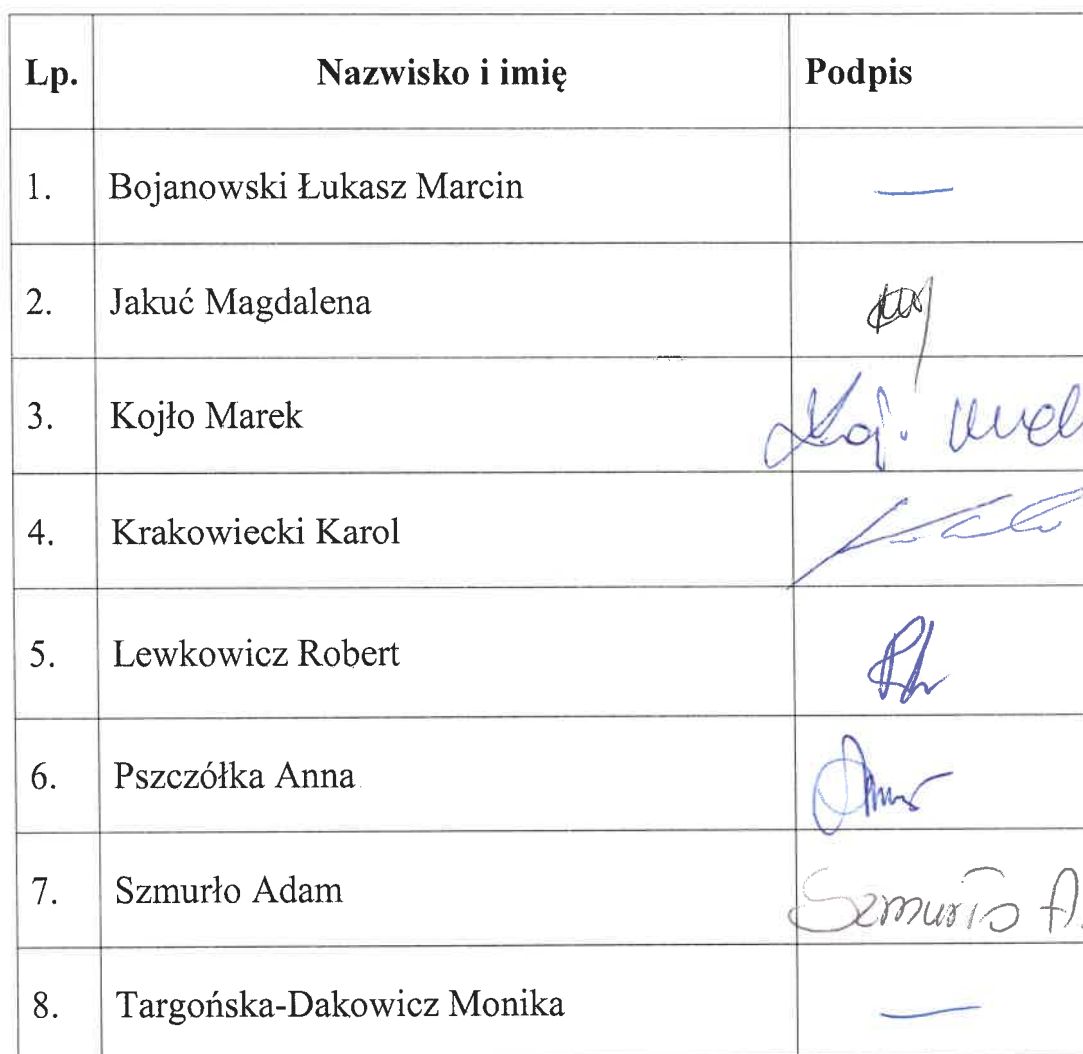 Lp. Nazwisko i imię Podpis
1. Bojanowski Łukasz Marcin —
2. Jakuć Magdalena
3. Kojło Marek
4. Krakowiecki Karol
5. Lewkowicz Robert
6. Pszczółka Anna
7. Szmurło Adam Szmurło A.
8. Targońska-Dakowicz Monika —